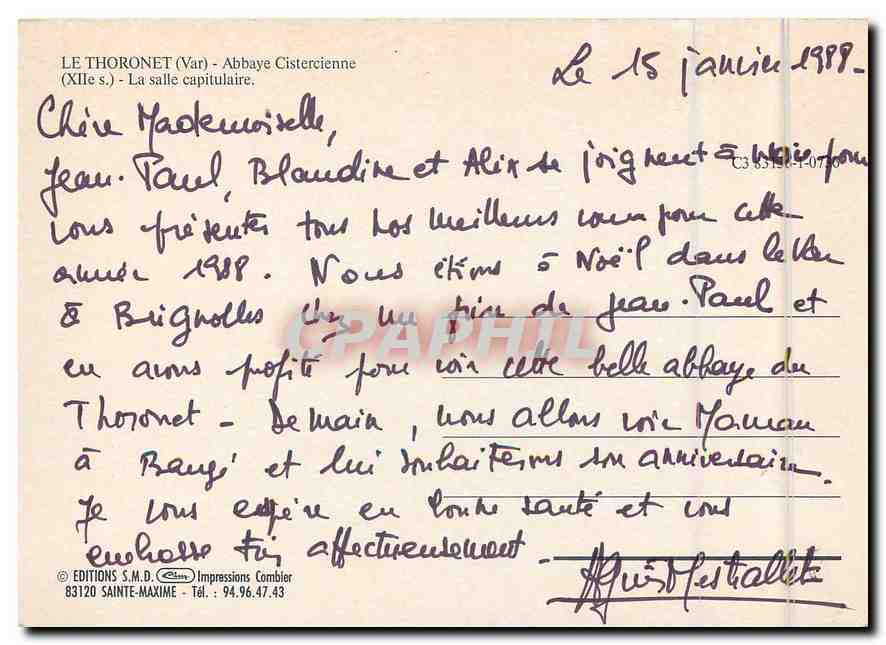 LE THORONET (Var) - Abbaye Cistercienne
(XIIe s.) - La salle capitulaire.
Le 15 janvier 1988-
Chère Mademoiselle,
C3 83136-1-0736
Jean-Paul, Blandine et Alix se joignent à moi pour
vous présenter tous nos meilleurs voeux pour cette
année 1988. Nous étions à Noël dans le Var
à Brignolles chez un frère de Jean-Paul et
CPAPHIL
en avons profité pour voir cette belle abbaye du
Thoronet - Demain, nous allons voir Maman
à Baugé et lui souhaiterons son anniversaire.
Je vous espère en bonne santé et vous
embrasse très affectueusement
© EDITIONS S.M.D. Cim Impressions Combier
83120 SAINTE-MAXIME - Tél. : 94.96.47.43